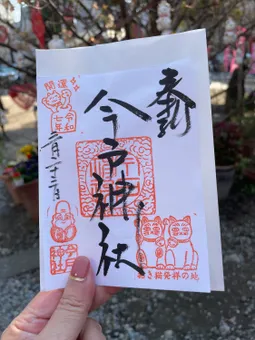 奉拝
今戸神社
開運
令和
七年
二月十二日
招き猫発祥の地